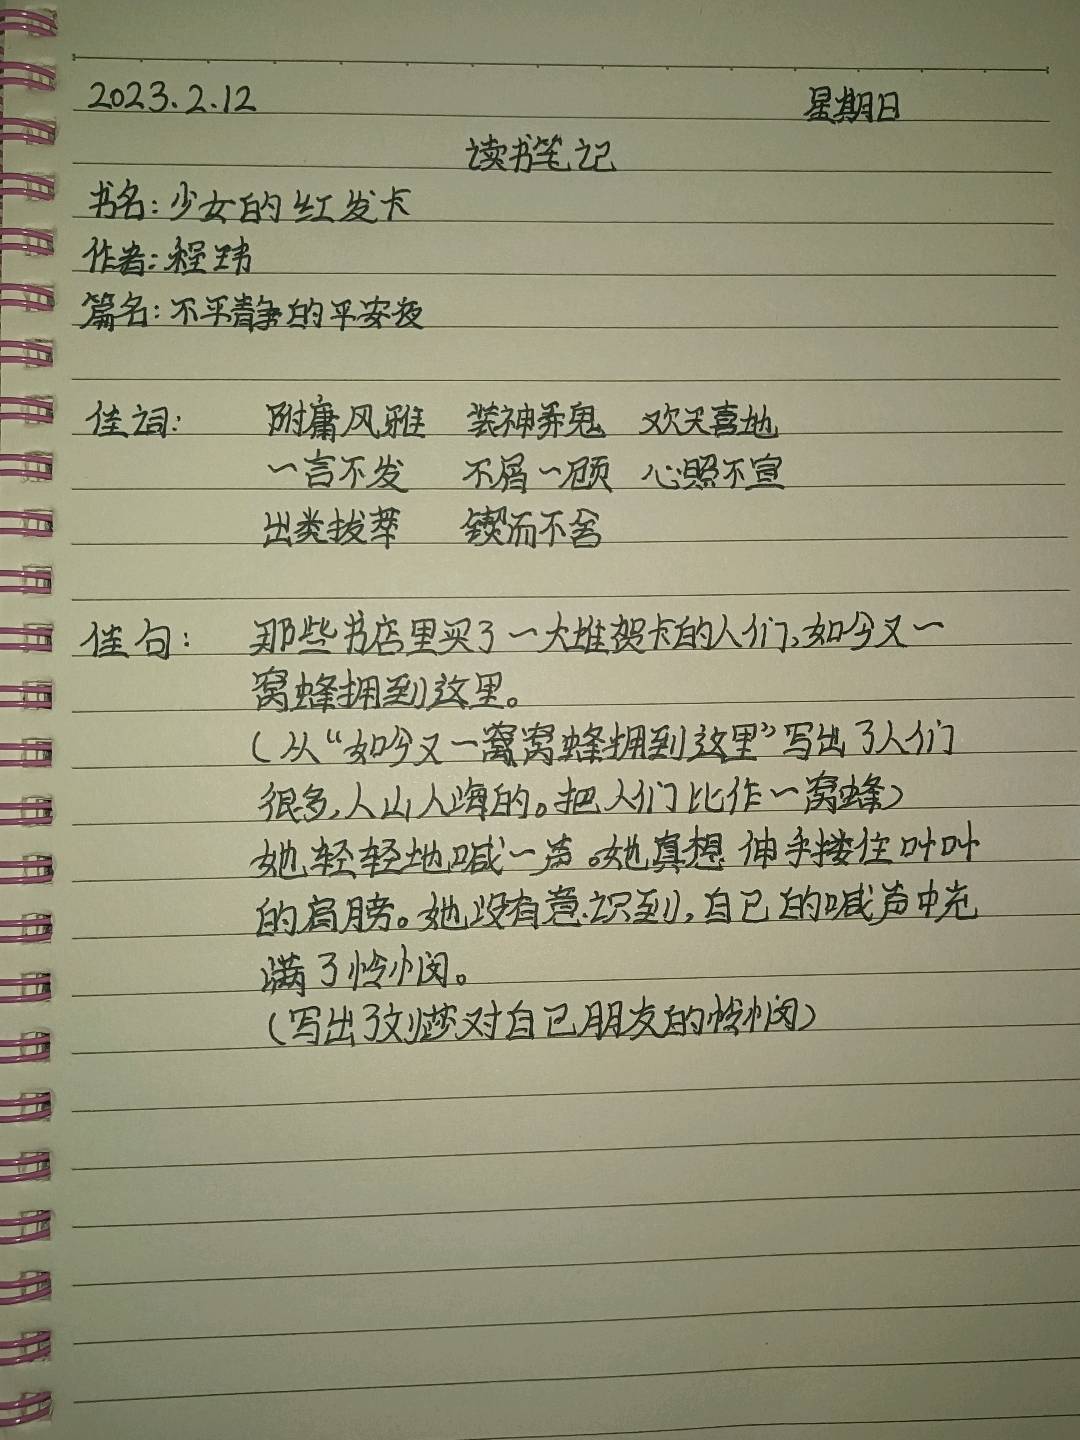 2023.2.12 星期日
读书笔记
书名:少女的红发卡
作者:程玮
篇名:不平静的平安夜
佳词: 附庸风雅 装神弄鬼 欢天喜地
一言不发 不屑一顾 心照不宣
出类拔萃 锲而不舍
佳句: 那些书店里买了一大堆贺卡的人们,如今又一
窝蜂拥到这里。
(从“如今又一窝窝蜂拥到这里”写出了人们
很多,人山人海的。把人们比作一窝蜂)
她轻轻地喊一声。她真想伸手搂住叶叶
的肩膀。她没有意识到,自己的喊声中充
满了怜悯。
(写出了刘莎对自己朋友的怜悯)